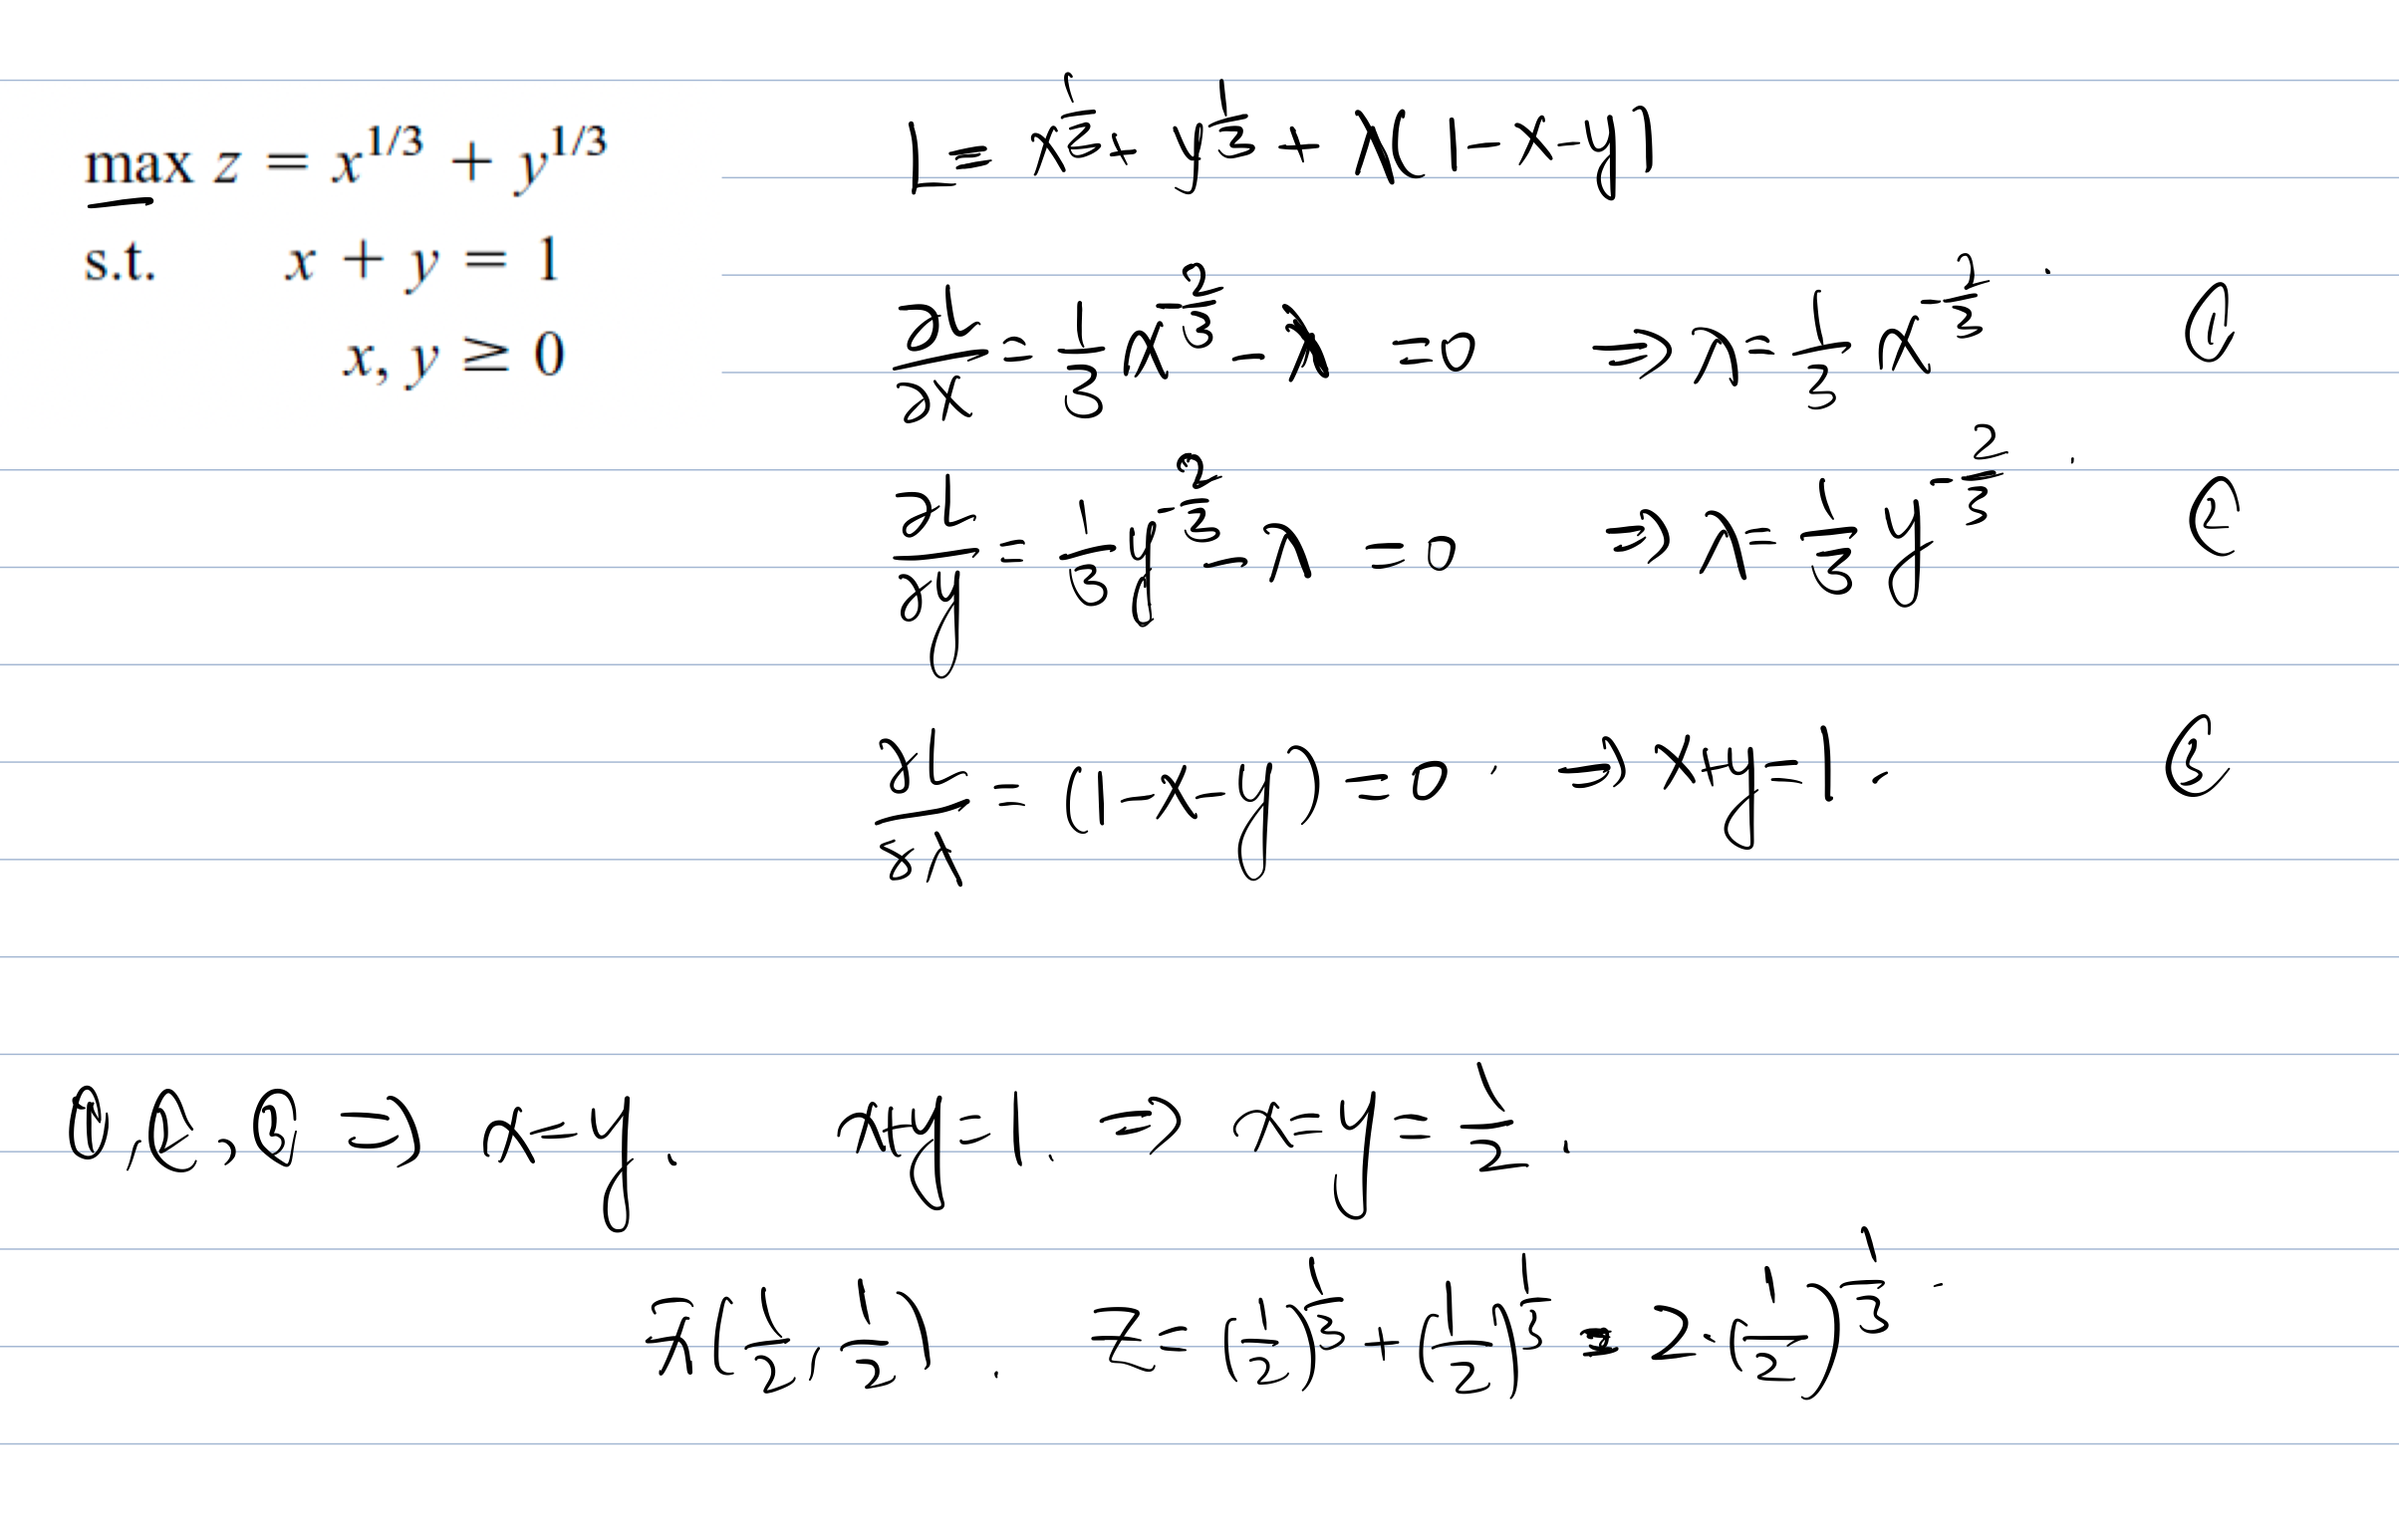 max z = x^{1/3} + y^{1/3}
s.t. x + y = 1
x, y ≥ 0
L = x^{1/3} + y^{1/3} + λ(1-x-y)
∂L/∂x = 1/3 x^{-2/3} - λ = 0 ⇒ λ = 1/3 x^{-2/3} ①
∂L/∂y = 1/3 y^{-2/3} - λ = 0 ⇒ λ = 1/3 y^{-2/3} ②
∂L/∂λ = (1-x-y) = 0 ⇒ x+y=1. ③
①,②,③ ⇒ x=y. x+y=1. ⇒ x=y=1/2.
(1/2, 1/2). z = (1/2)^{1/3} + (1/2)^{1/3} = 2·(1/2)^{1/3}